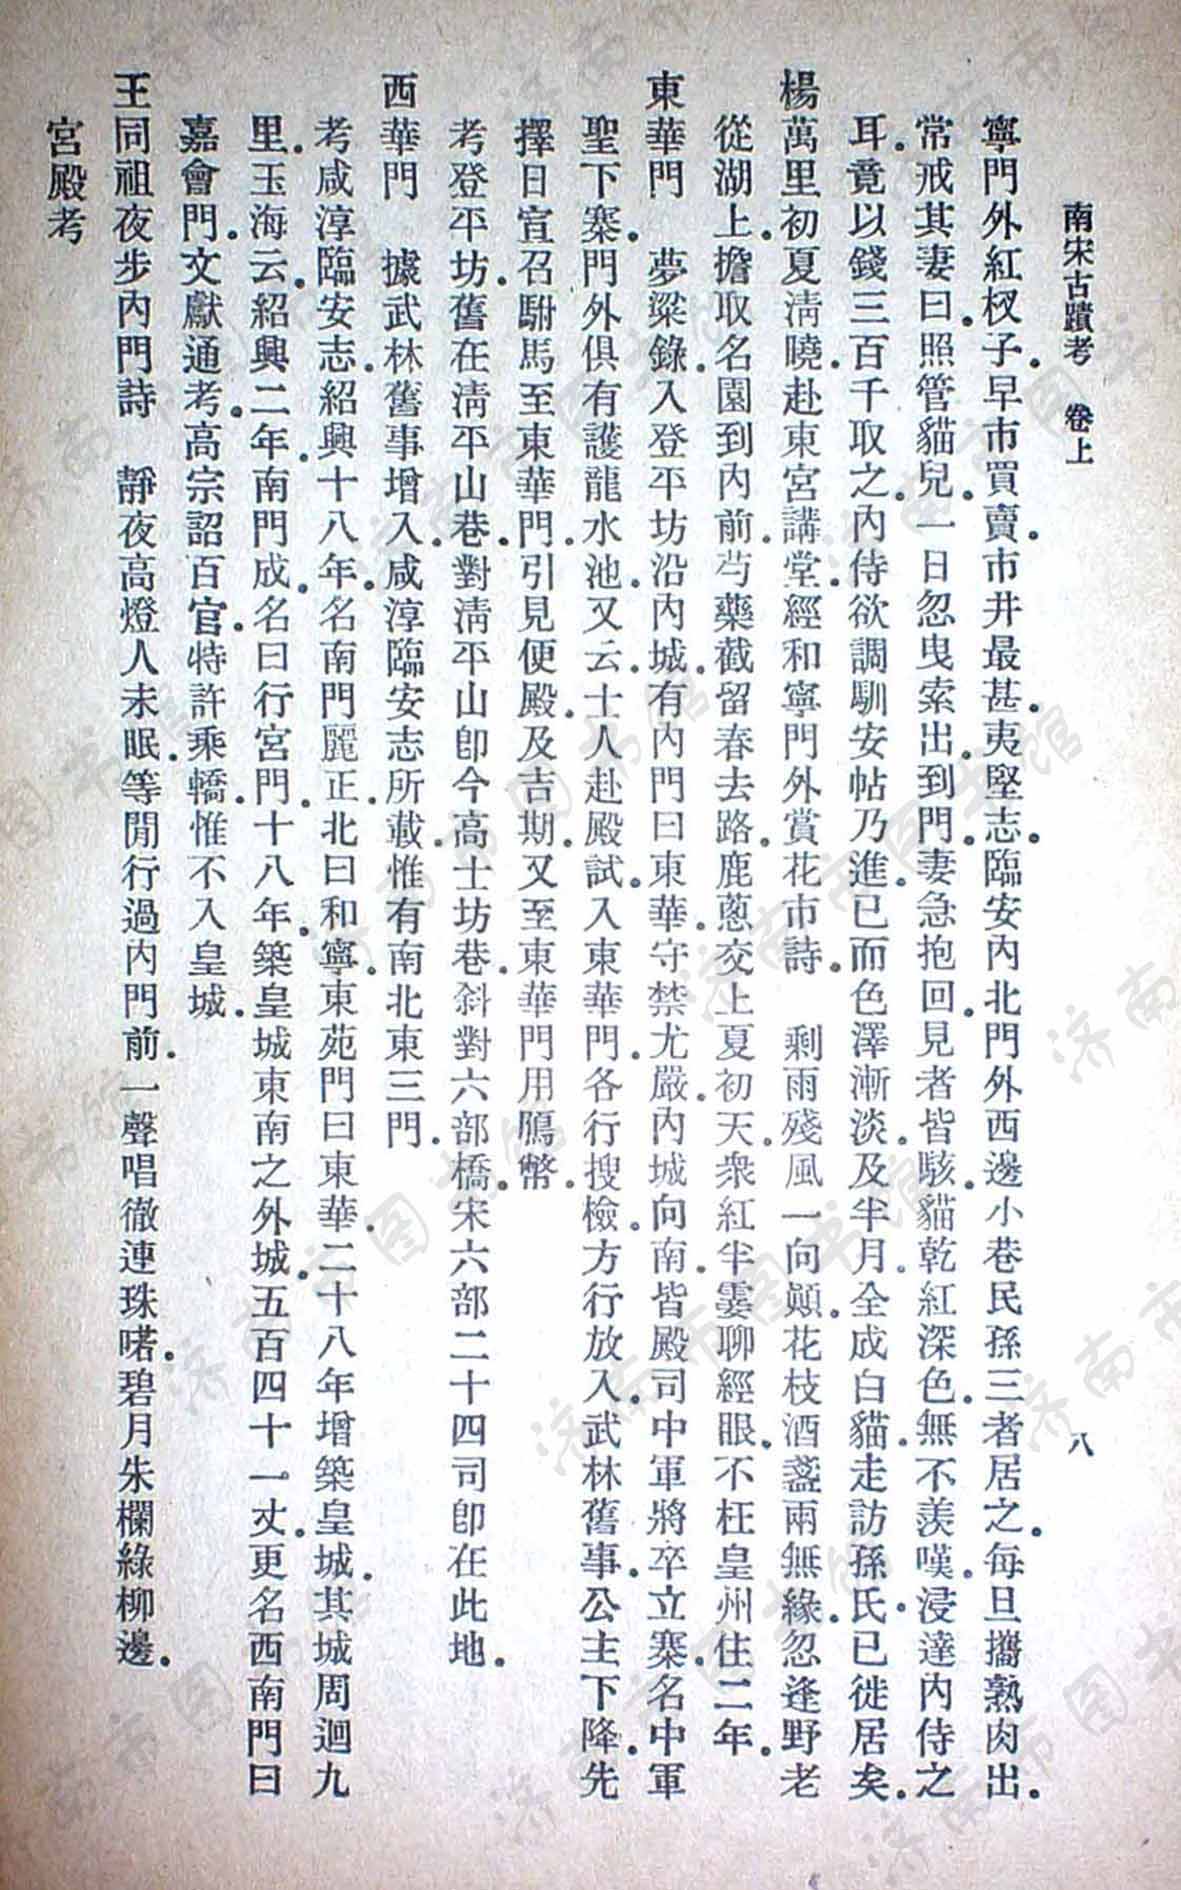 南宋古蹟考　卷上　八
寧門外紅杈子。早市買賣。市井最甚。夷堅志。臨安內北門外西邊小巷民孫三者居之。每旦攜熟肉出。
常戒其妻曰。照管貓兒。一日忽曳索出。到門。妻急抱回。見者皆駭。貓乾紅深色。無不羨嘆。浸達內侍之
耳。竟以錢三百千取之。內侍欲調馴安帖乃進。已而色澤漸淡。及半月。全成白貓。走訪孫氏。已徙居矣。
楊萬里初夏淸曉。赴東宮講堂。經和寧門外賞花市詩。　剩雨殘風一向顚。花枝酒盞兩無緣。忽逢野老
從湖上。擔取名園到內前。芍藥截留春去路。鹿蔥交上夏初天。衆紅半霎聊經眼。不枉皇州住二年。
東華門　夢粱錄。入登平坊沿內城。有內門曰東華。守禁尤嚴。內城向南。皆殿司中軍將卒立寨。名中軍
聖下寨。門外俱有護龍水池。又云。士人赴殿試。入東華門。各行搜檢。方行放入。武林舊事。公主下降。先
擇日宣召駙馬至東華門。引見便殿。及吉期。又至東華門用鴈幣。
考登平坊。舊在淸平山巷。對淸平山。卽今高士坊巷。斜對六部橋。宋六部二十四司卽在此地。
西華門　據武林舊事增入。咸淳臨安志所載。惟有南北東三門。
考咸淳臨安志。紹興十八年。名南門麗正。北曰和寧。東苑門曰東華。二十八年增築皇城。其城周迴九
里。玉海云。紹興二年。南門成。名曰行宮門。十八年。築皇城東南之外城。五百四十一丈。更名西南門曰
嘉會門。文獻通考。高宗詔百官。特許乘轎。惟不入皇城。
王同祖夜步內門詩　靜夜高燈人未眠。等閒行過內門前。一聲唱徹連珠喏。碧月朱欄綠柳邊。
宮殿考
济南市图书馆